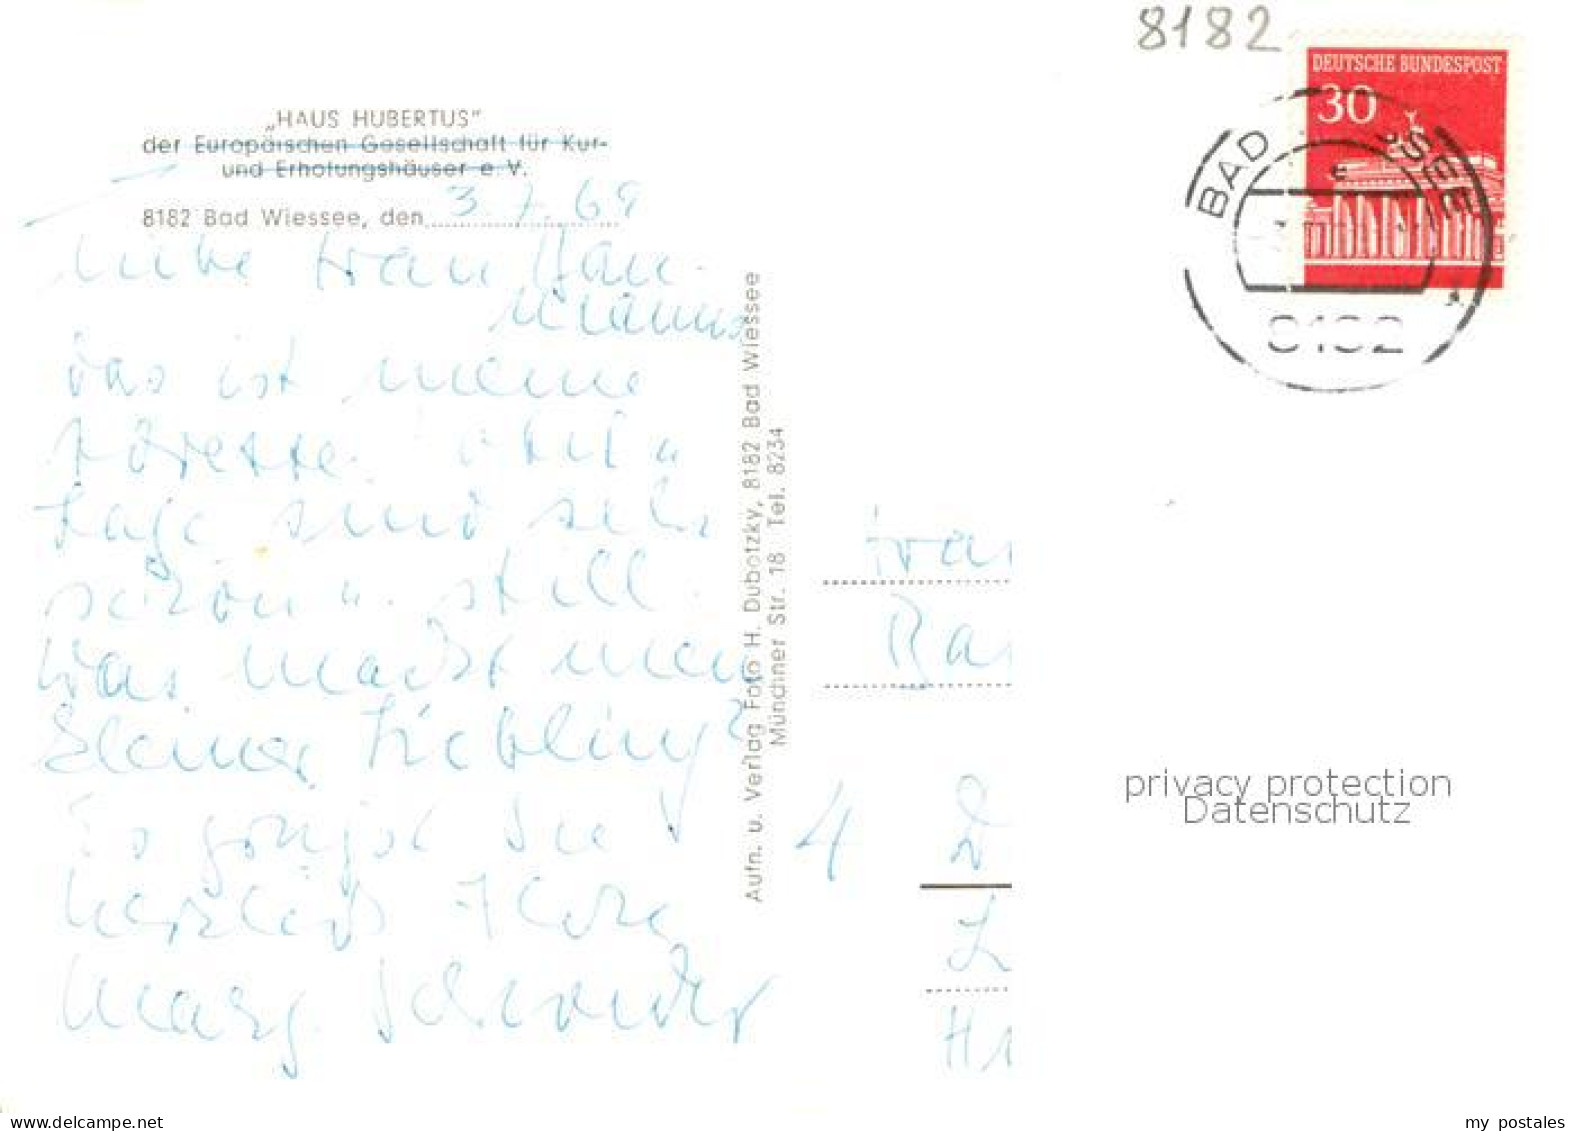 8182
DEUTSCHE BUNDESPOST
30
BAD SSEE
8182
„HAUS HUBERTUS"
der Europäischen Gesellschaft für Kur-
und Erholungshäuser e. V.
8182 Bad Wiessee, den 3.7.69
Liebe Frau Hau-
mann
das ist meine
Adresse.
Tage sind sehr
schön u. still.
Was macht mein
kleiner Liebling?
Es grüßt Sie
herzlich Ihre
Marg. Schröder
Aufn. u. Verlag Foto H. Dubotzky, 8182 Bad Wiessee
Münchner Str. 18 Tel. 8234
Frau
4 D
privacy protection
Datenschutz
www.delcampe.net
my_postales